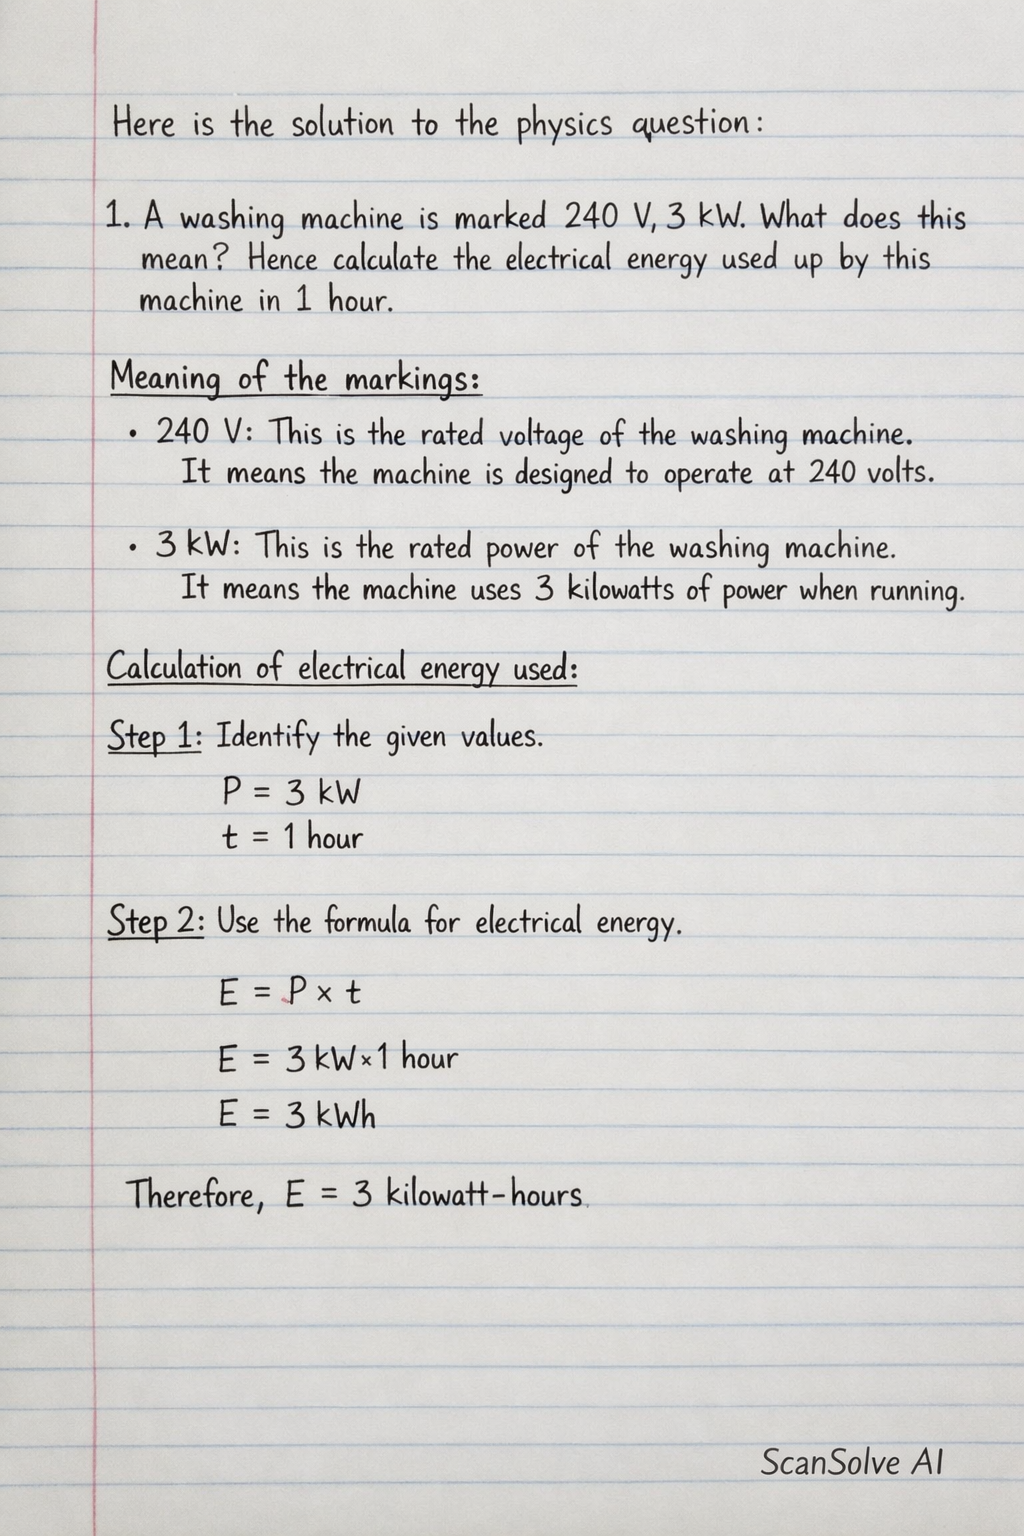 Here is the solution to the physics question:
1. A washing machine is marked 240 V, 3 kW. What does this
mean? Hence calculate the electrical energy used up by this
machine in 1 hour.
Meaning of the markings:
• 240 V: This is the rated voltage of the washing machine.
It means the machine is designed to operate at 240 volts.
• 3 kW: This is the rated power of the washing machine.
It means the machine uses 3 kilowatts of power when running.
Calculation of electrical energy used:
Step 1: Identify the given values.
P = 3 kW
t = 1 hour
Step 2: Use the formula for electrical energy.
E = P × t
E = 3 kW × 1 hour
E = 3 kWh
Therefore, E = 3 kilowatt-hours.
ScanSolve AI